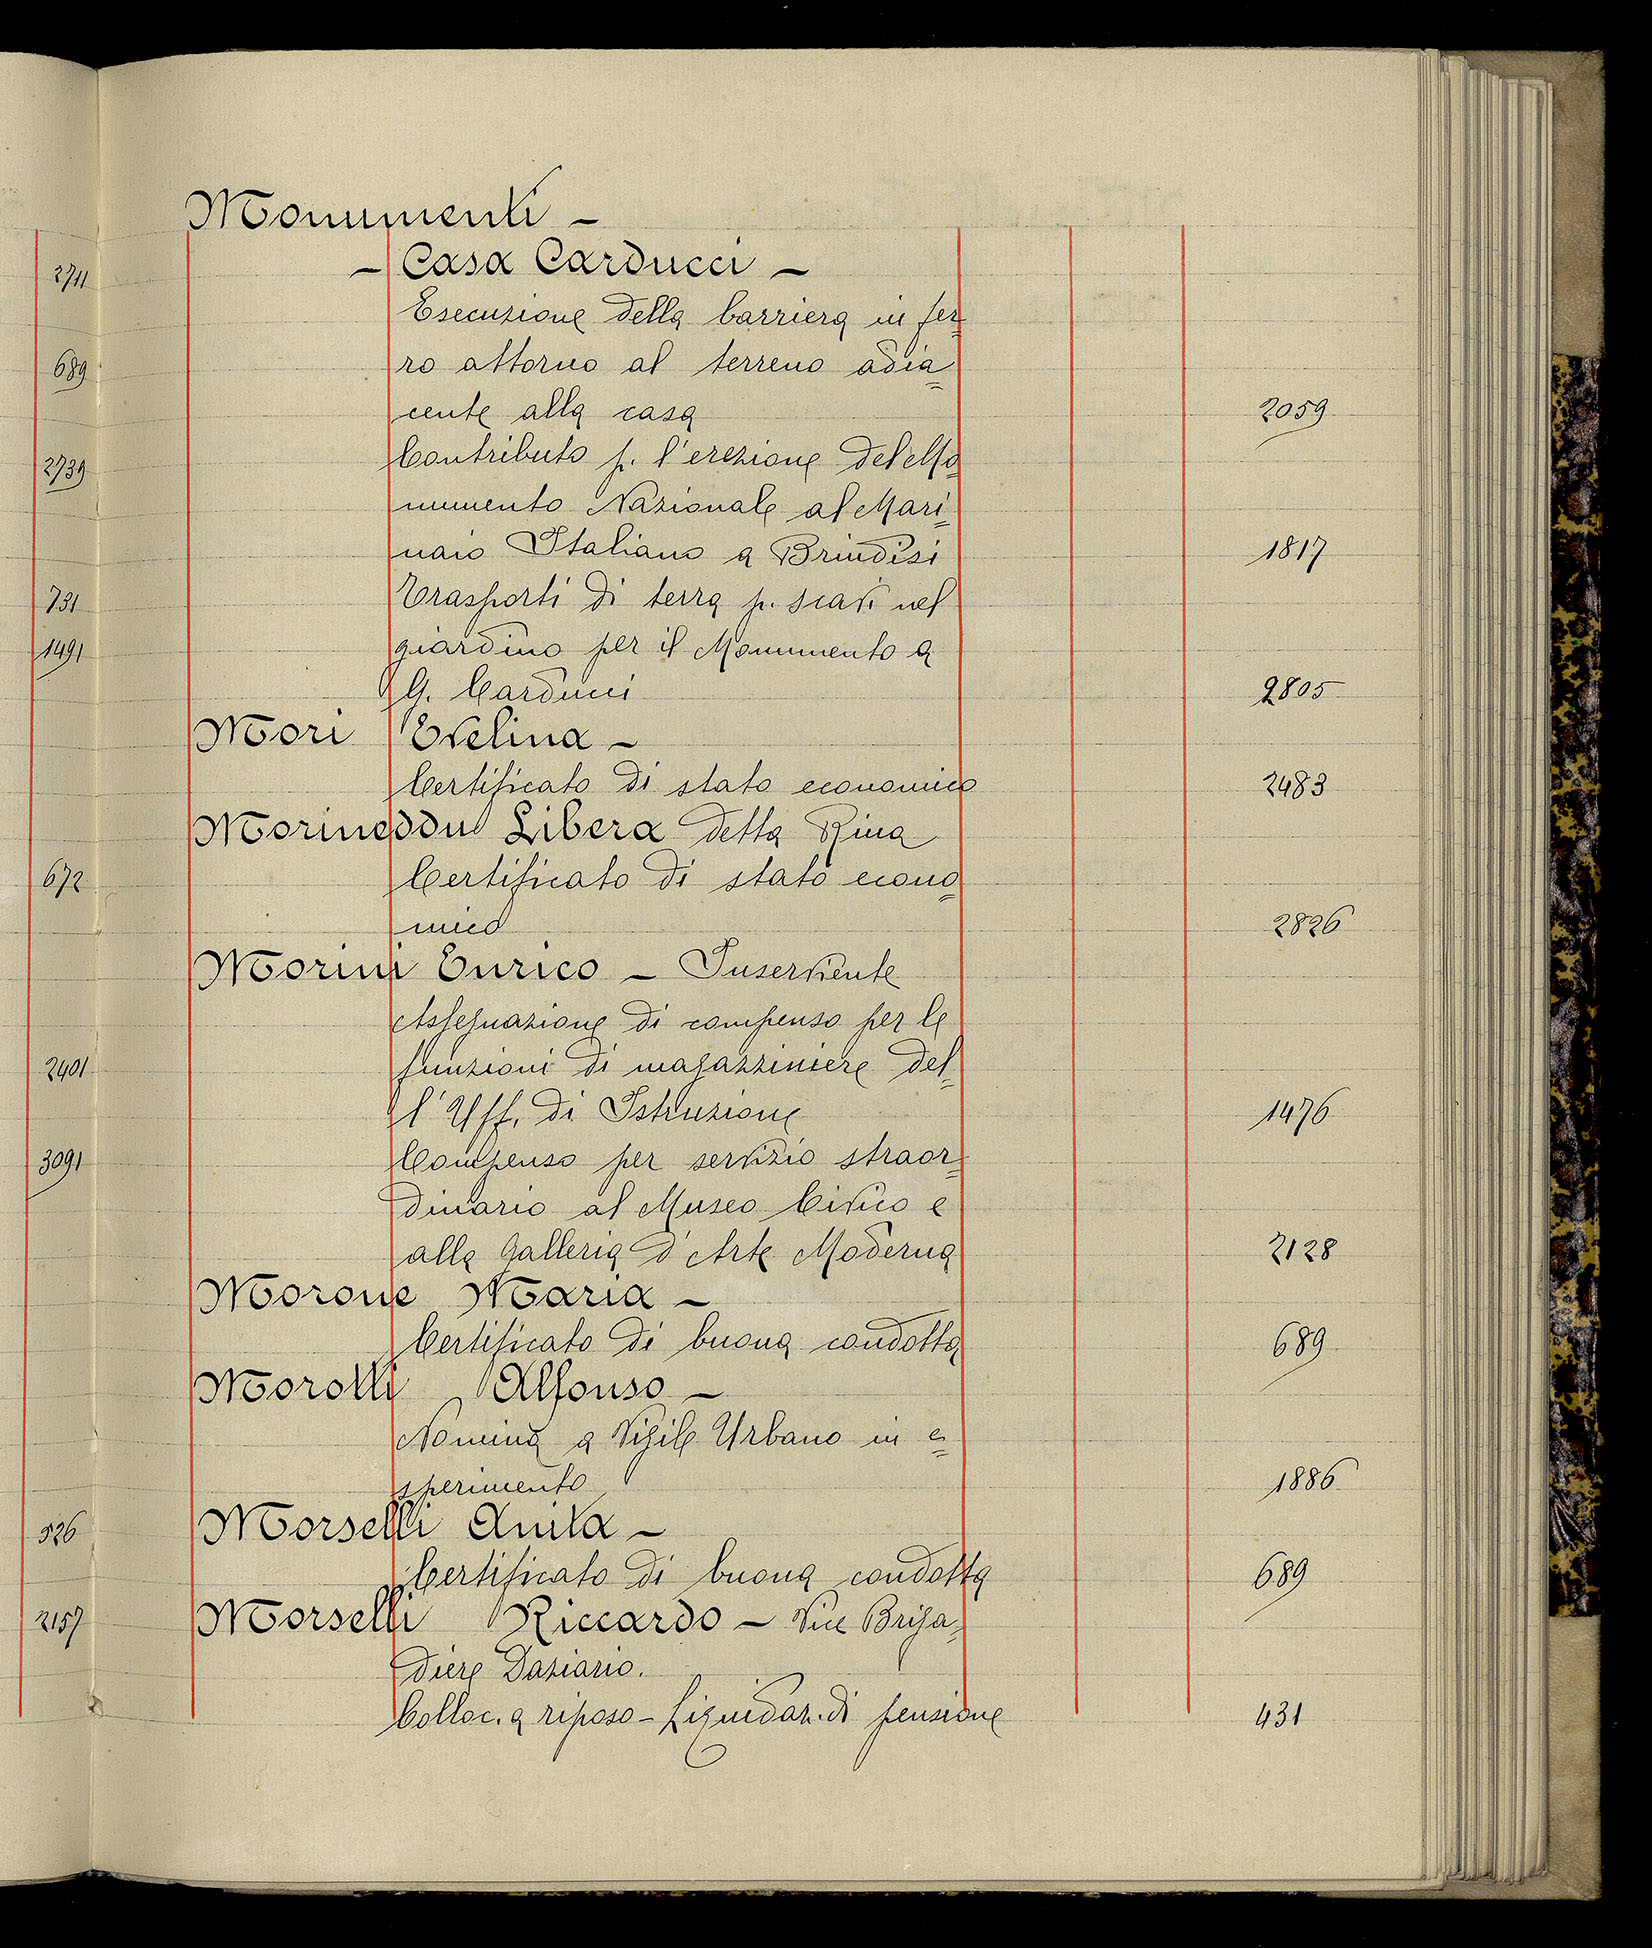 2711
689
2739
731
1491
672
2401
3091
526
2157
Monumenti -
- Casa Carducci -
Esecuzione della barriera in fer-
ro attorno al terreno adia=
cente alla casa 2059
Contributo p. l'erezione del Mo=
numento Nazionale al Mari=
naio Italiano a Brindisi 1817
Trasporti di terra p. scavi nel
giardino per il Monumento a
G. Carducci 2805
Mori Evelina -
Certificato di stato economico 2483
Morineddu Libera detta Rina
Certificato di stato econo=
mico 2826
Morini Enrico - Inserviente
Assegnazione di compenso per le
funzioni di magazziniere del=
l'Uff. di Istruzione 1476
Compenso per servizio straor=
dinario al Museo Civico e
alla Galleria d'Arte Moderna 2128
Morone Maria -
Certificato di buona condotta 689
Morotti Alfonso -
Nomina a Vigile Urbano in e=
sperimento 1886
Morselli Anita -
Certificato di buona condotta 689
Morselli Riccardo - Vice Briga=
diere Daziario.
Colloc. a riposo - Liquidaz. di pensione 431